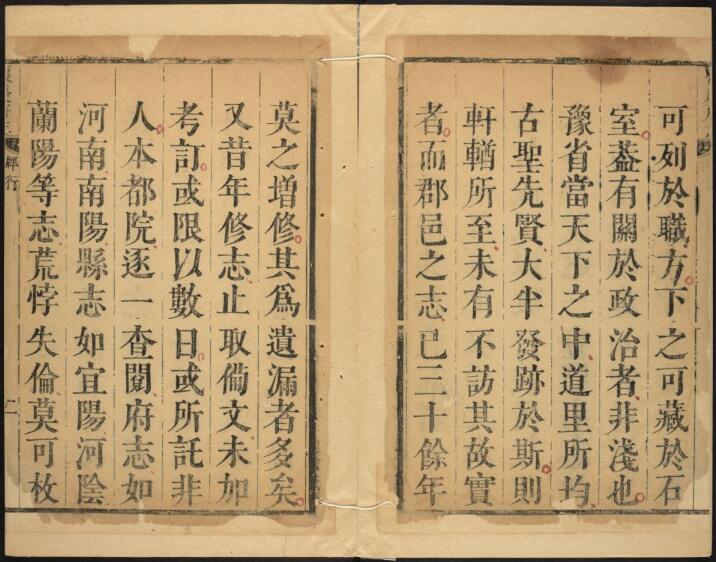 可列於職方下之可藏於石
室葢有關於政治者非淺也
豫省當天下之中道里所均
古聖先賢大半發跡於斯則
軒輶所至未有不訪其故實
者而郡邑之志已三十餘年
莫之增修其爲遺漏者多矣
又昔年修志止取僃文未如
考訂或限以數日或所託非
人本都院逐一查閱府志如
河南南陽縣志如宜陽河陰
蘭陽等志荒悖失倫莫可枚